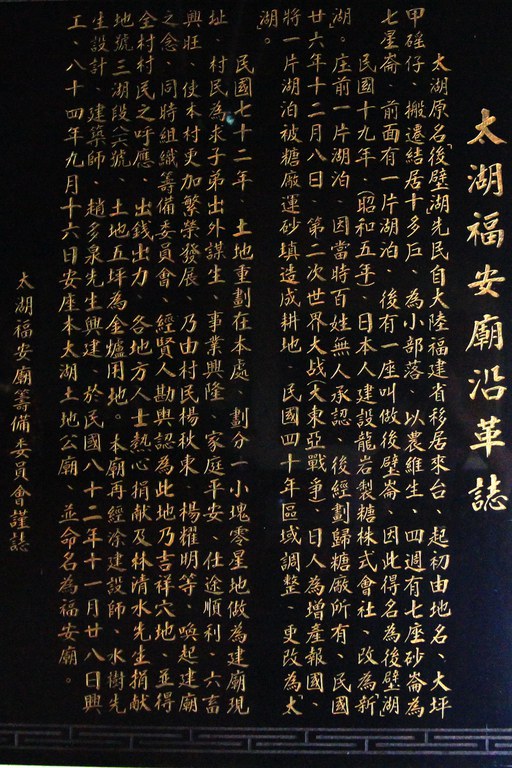 太湖福安廟沿革誌
太湖原名「後壁湖」先民自大陸福建省移居來台、起初由地名、大坪
甲硘仔、搬遷結居十多戶、為小部落、以農維生、四週有七座砂崙為
七星崙、前面有一片湖泊、後有一座叫做後壁崙、因此得名為後壁湖」
民國十九年、(昭和五年)、日本人建設龍岩製糖株式會社、改為新
湖。庄前一片湖泊、因當時百姓無人承認、後經劃歸糖廠所有、民國
廿六年十二月八日、第二次世界大战(大東亞戰爭)、日人為增產報國、
將一片湖泊被糖廠運砂填造成耕地、民國四十年區域調整、更改為「太
湖」。
民國七十二年、土地重劃在本處、劃分一小塊零星地做為建廟現
址、村民為求子弟出外謀生、事業興隆、家庭平安、仕途順利、六畜
興旺、使本村更加繁榮發展、乃由村民楊秋東、楊耀明等、喚起建廟
之念、同時組織籌備委員會、經賢人勘輿認為此地乃吉祥穴地、並得
全村村民之呼應、出錢出力、各地方人士熱心捐獻及林清水先生捐獻
地號三湖段六號、土地五坪為金爐用地。本廟再經涂建設師、水樹先
生設計、建築師、趙多泉先生興建、於民國八十二年十一月廿八日興
工、八十四年九月十六日安座本太湖土地公廟、並命名為福安廟。
太湖福安廟籌備委員會謹誌